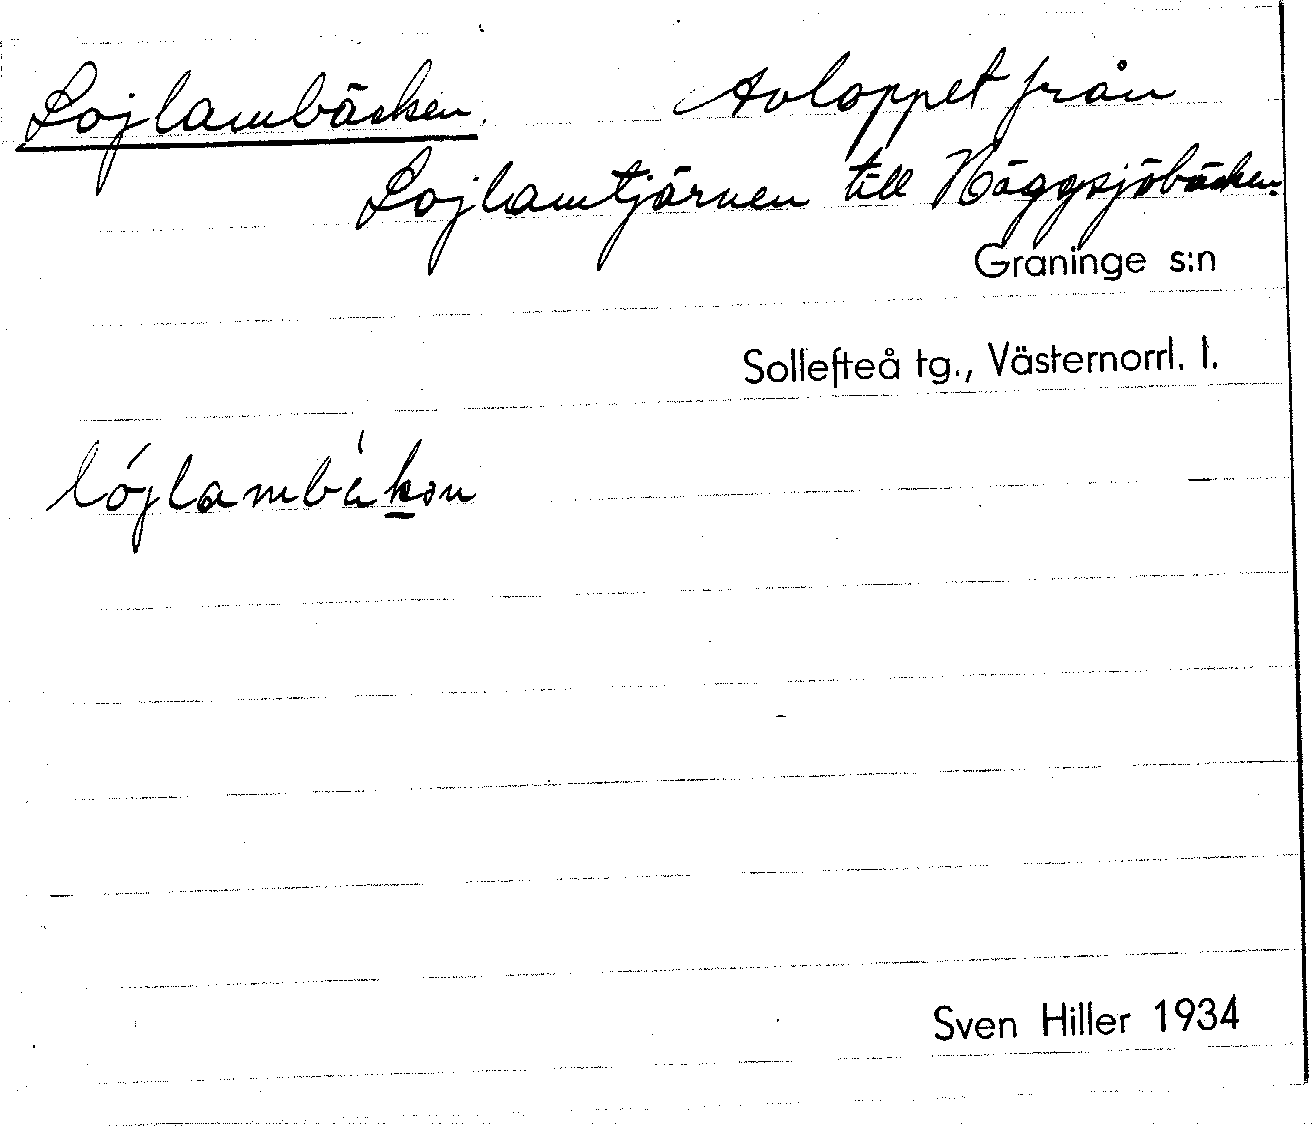 Lojlambäcken. Avloppet från
Lojlamtjärnen till Häggsjöbäcken.
Graninge s:n
Sollefteå tg., Västernorrl. l.
lójlambèkən
Sven Hiller 1934